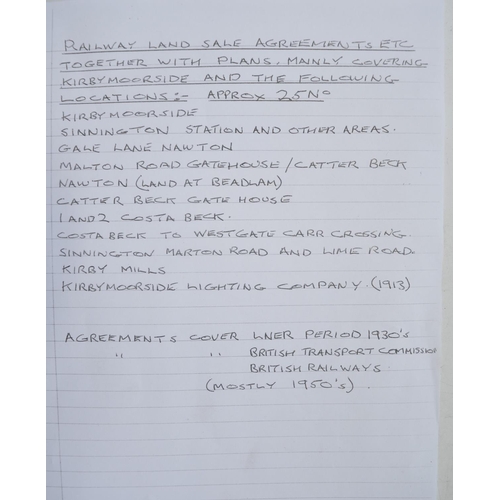 RAILWAY LAND SALE AGREEMENTS ETC
TOGETHER WITH PLANS, MAINLY COVERING
KIRBYMOORSIDE AND THE FOLLOWING
LOCATIONS:- APPROX 25No
KIRBYMOORSIDE
SINNINGTON STATION AND OTHER AREAS.
GALE LANE NAWTON
MALTON ROAD GATEHOUSE/CATTER BECK
NAWTON (LAND AT BEADLAM)
CATTER BECK GATE HOUSE
1 AND 2 COSTA BECK.
COSTA BECK TO WESTGATE CARR CROSSING.
SINNINGTON MARTON ROAD AND LIME ROAD.
KIRBY MILLS
KIRBYMOORSIDE LIGHTING COMPANY. (1913)
AGREEMENTS COVER LNER PERIOD 1930's
" " BRITISH TRANSPORT COMMISSION
BRITISH RAILWAYS.
(MOSTLY 1950's).